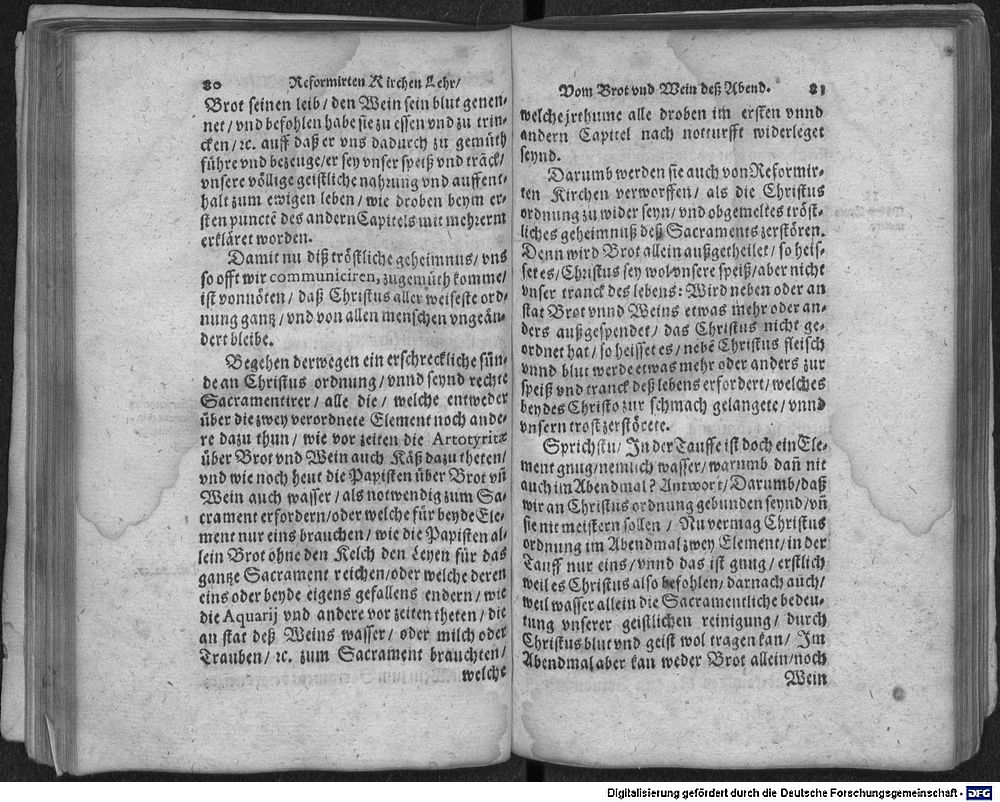 80 Reformirten Kirchen Lehr/
Brot seinen leib/ den Wein sein blut genen-
net/ vnd befohlen habe sie zu essen vnd zu trin-
cken/ ꝛc. auff daß er vns dadurch zu gemüth
führe vnd bezeuge/ er sey vnser speiß vnd trãck/
vnsere völlige geistliche nahrung vnd auffent-
halt zum ewigen leben/ wie droben beym er-
sten punctẽ des andern Capitels mit mehrerm
erkläret worden.
Damit nu diß tröstliche geheimnus/ vns
so offt wir communiciren, zugemüth komme/
ist vonnöten/ daß Christus aller weiseste ord-
nung gantz/ vnd von allen menschen vngeän-
dert bleibe.
Begehen derwegen ein erschreckliche sün-
de an Christus ordnung/ vnnd seynd rechte
Sacramentirer/ alle die/ welche entweder
über die zwey verordnete Element noch ande-
re dazu thun/ wie vor zeiten die Artotyritæ
über Brot vnd Wein auch Käß dazu theten/
vnd wie noch heut die Papisten über Brot vñ
Wein auch wasser/ als notwendig zum Sa-
crament erfordern/ oder welche für beyde Ele-
ment nur eins brauchen/ wie die Papisten al-
lein Brot ohne den Kelch den Leyen für das
gantze Sacrament reichen/ oder welche deren
eins oder beyde eigens gefallens endern/ wie
die Aquarij vnd andere vor zeiten theten/ die
an stat deß Weins wasser/ oder milch oder
Trauben/ ꝛc. zum Sacrament brauchten/
welche
Vom Brot vnd Wein deß Abend. 81
welche jrthume alle droben im ersten vnnd
andern Capitel nach notturfft widerleget
seynd.
Darumb werden sie auch von Reformir-
ten Kirchen verworffen/ als die Christus
ordnung zu wider seyn/ vnd obgemeltes tröst-
liches geheimnuß deß Sacraments zerstören.
Denn wird Brot allein außgetheilet/ so heis-
set es/ Christus sey wol vnsere speiß/ aber nicht
vnser tranck des lebens: Wird neben oder an
stat Brot vnnd Weins etwas mehr oder an-
ders außgespendet/ das Christus nicht ge-
ordnet hat/ so heisset es/ nebẽ Christus fleisch
vnnd blut werde etwas mehr oder anders zur
speiß vnd tranck deß lebens erfordert/ welches
beydes Christo zur schmach gelangete/ vnnd
vnsern trost zerstörete.
Sprichstu/ In der Tauffe ist doch ein Ele-
ment gnug/ nemlich wasser/ warumb dañ nit
auch im Abendmal? Antwort/ Darumb/ daß
wir an Christus ordnung gebunden seynd/ vñ
sie nit meistern sollen/ Nu vermag Christus
ordnung im Abendmal zwey Element/ in der
Tauff nur eins/ vnnd das ist gnug/ erstlich
weil es Christus also befohlen/ darnach auch/
weil wasser allein die Sacramentliche bedeu-
tung vnserer geistlichen reinigung/ durch
Christus blut vnd geist wol tragen kan/ Im
Abendmal aber kan weder Brot allein/ noch
Wein
Digitalisierung gefördert durch die Deutsche Forschungsgemeinschaft - DFG